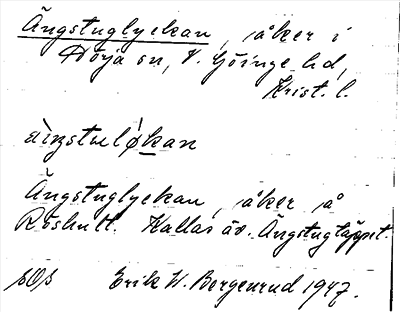 Ängstuglyckan, åker i
Hörja sn, V. Göinge hd,
Krist. l.
Ängstuglyckan, åker å
Röshult. Kallas äv. Ängstugtäppet.
Erik W. Bergenrud 1947.